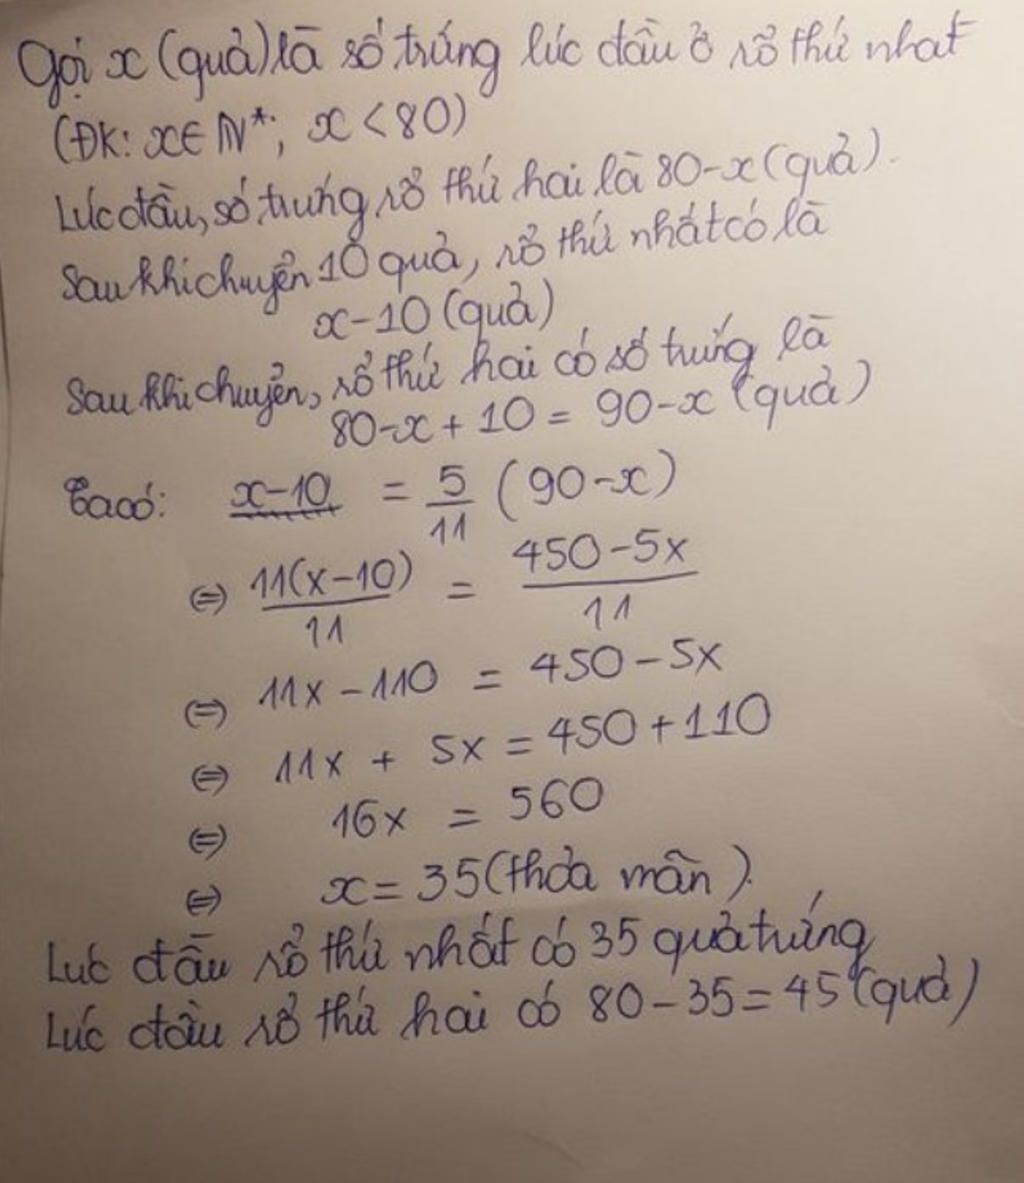 Gọi x (quả) là số trứng lúc đầu ở rổ thứ nhat
(ĐK: x∈ ℕ*; x < 80)
Lúc đầu, số trứng rổ thứ hai là 80-x (quả).
Sau khi chuyển 10 quả, rổ thứ nhất có là
x-10 (quả)
Sau khi chuyển, rổ thứ hai có số trứng là
80-x + 10 = 90-x (quả)
Ta có: x-10 = 5/11 (90-x)
⇔ 11(x-10)/11 = 450-5x/11
⇔ 11x - 110 = 450 - 5x
⇔ 11x + 5x = 450 + 110
⇔ 16x = 560
⇔ x = 35 (thỏa mãn).
Lúc đầu rổ thứ nhất có 35 quả trứng
Lúc đầu rổ thứ hai có 80-35 = 45 (quả)